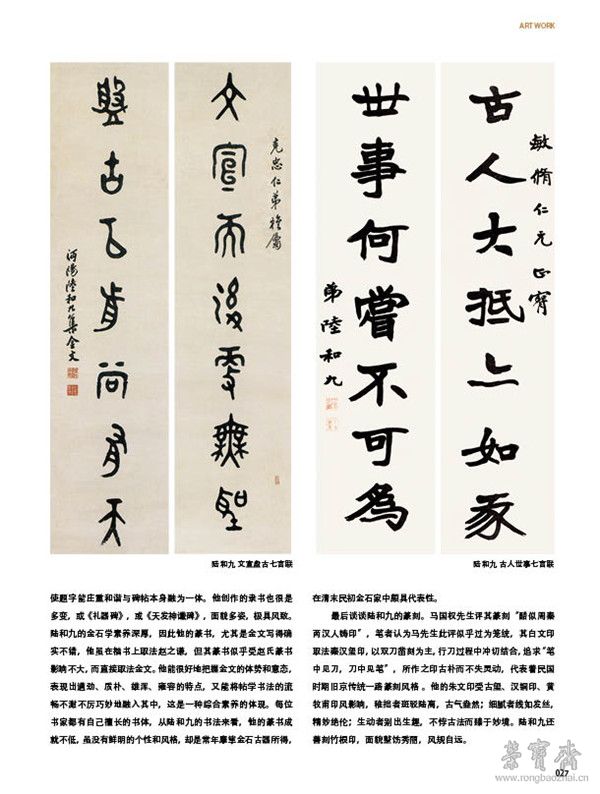 ART WORK
文宣而後更無聖
克忠仁弟雅屬
盤古以前尚有天
河陽陸和九集金文
古人大抵 如
敏脩仁兄正
世事何嘗不可為
弟陸和九
陆和九 文宣盘古七言联
陆和九 古人世事七言联
使题字能庄重和谐与碑帖本身融为一体。他创作的隶书也很是
多变，或《礼器碑》，或《天发神谶碑》，面貌多姿，极具风致。
陆和九的金石学素养深厚，因此他的篆书，尤其是金文写得确
实不错，他虽在楷书上取法赵之谦，但其篆书似乎受赵氏篆书
影响不大，而直接取法金文。他能很好地把握金文的体势和意态，
表现出遒劲、质朴、雄浑、雍容的特点，又能将帖学书法的流
畅不激不厉巧妙地融入其中，这是一种综合素养的体现。每位
书家都有自己擅长的书体，从陆和九的书法来看，他的篆书成
就不低，虽没有鲜明的个性和风格，却是常年摩挲金石古器所得，
在清末民初金石家中颇具代表性。
最后谈谈陆和九的篆刻。马国权先生评其篆刻“酷似周秦
两汉人铸印”，笔者认为马先生此评似乎过为笼统，其白文印
取法秦汉玺印，以双刀凿刻为主，行刀过程中冲切结合，追求“笔
中见刀，刀中见笔”，所作之印古朴而不失灵动，代表着民国
时期旧京传统一路篆刻风格。他的朱文印受古玺、汉铜印、黄
牧甫印风影响，粗拙者斑驳陆离，古气盎然；细腻者线如发丝，
精妙绝伦；生动者别出生趣，不悖古法而臻于妙境。陆和九还
善刻竹根印，面貌整饬秀丽，风规自远。
荣宝斋
www.rongbaozhai.cn
027